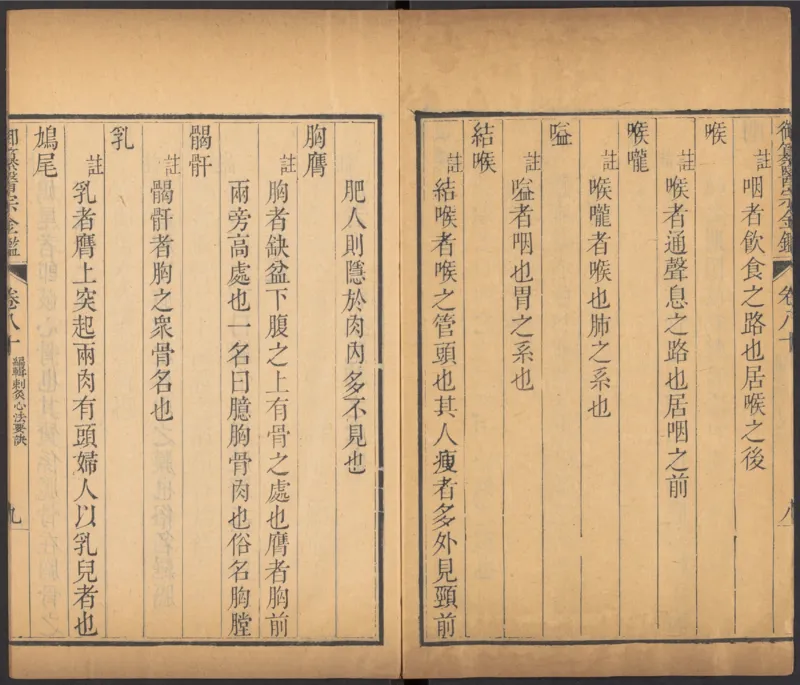 御纂醫宗金鑑 卷八十 八
註 咽者飲食之路也居喉之後
喉
註 喉者通聲息之路也居咽之前
喉嚨
註 喉嚨者喉也肺之系也
嗌
註 嗌者咽也胃之系也
結喉
註 結喉者喉之管頭也其人瘦者多外見頸前
肥人則隱於肉內多不見也
胸膺
註 胸者缺盆下腹之上有骨之處也膺者胸前
兩旁高處也一名曰臆胸骨肉也俗名胸膛
𩩲骬
註 𩩲骬者胸之衆骨名也
乳
註 乳者膺上突起兩肉有頭婦人以乳兒者也
鳩尾
御纂醫宗金鑑 卷八十 編輯刺灸心法要訣 九